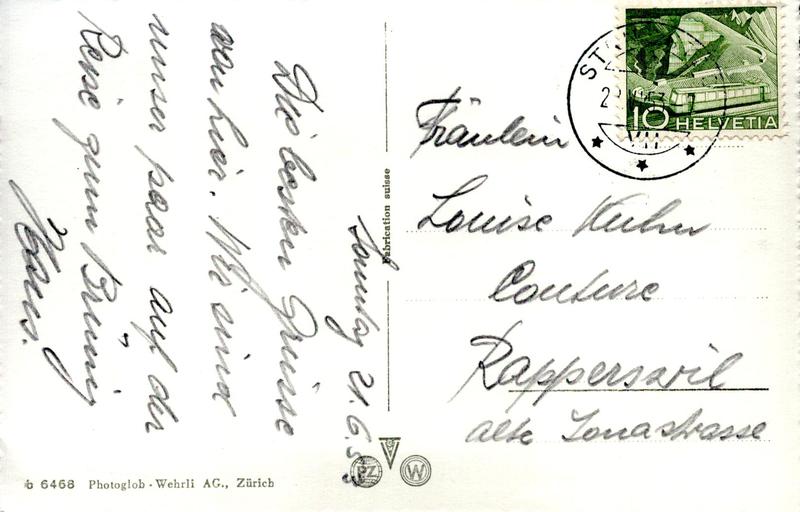 Sonntag 21.6.53
Die besten Grüsse
von hier. Wir sind
unser paar auf der
Reise zum Brünig
Hans.
Fabrication suisse
ST
10 HELVETIA
VII
Fräulein
Louise Kuhn
Couture
Rapperswil
alte Jonastrasse
PZ W
b 6468 Photoglob - Wehrli AG., Zürich